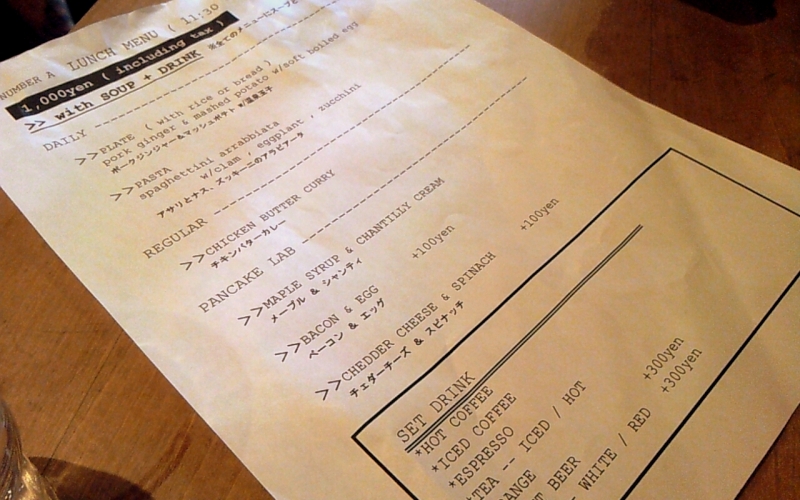 NUMBER A LUNCH MENU ( 11:30
1,000yen ( including tax )
>> with SOUP + DRINK ※全てのメニューにスープと
DAILY
>>PLATE ( with rice or bread )
pork ginger & mashed potato w/soft boiled egg
ポークジンジャー&マッシュポテト w/温泉玉子
>>PASTA
spaghettini arrabbiata
w/clam , eggplant , zucchini
アサリとナス、ズッキーニのアラビアータ
REGULAR
>>CHICKEN BUTTER CURRY
チキンバターカレー
PANCAKE LAB
>>MAPLE SYRUP & CHANTILLY CREAM
メープル & シャンティ
>>BACON & EGG +100yen
ベーコン & エッグ
>>CHEDDER CHEESE & SPINACH +100yen
チェダーチーズ & スピナッチ
SET DRINK
*HOT COFFEE
*ICED COFFEE
*ESPRESSO
*TEA -- ICED / HOT
BEER +300yen
-- WHITE / RED +300yen